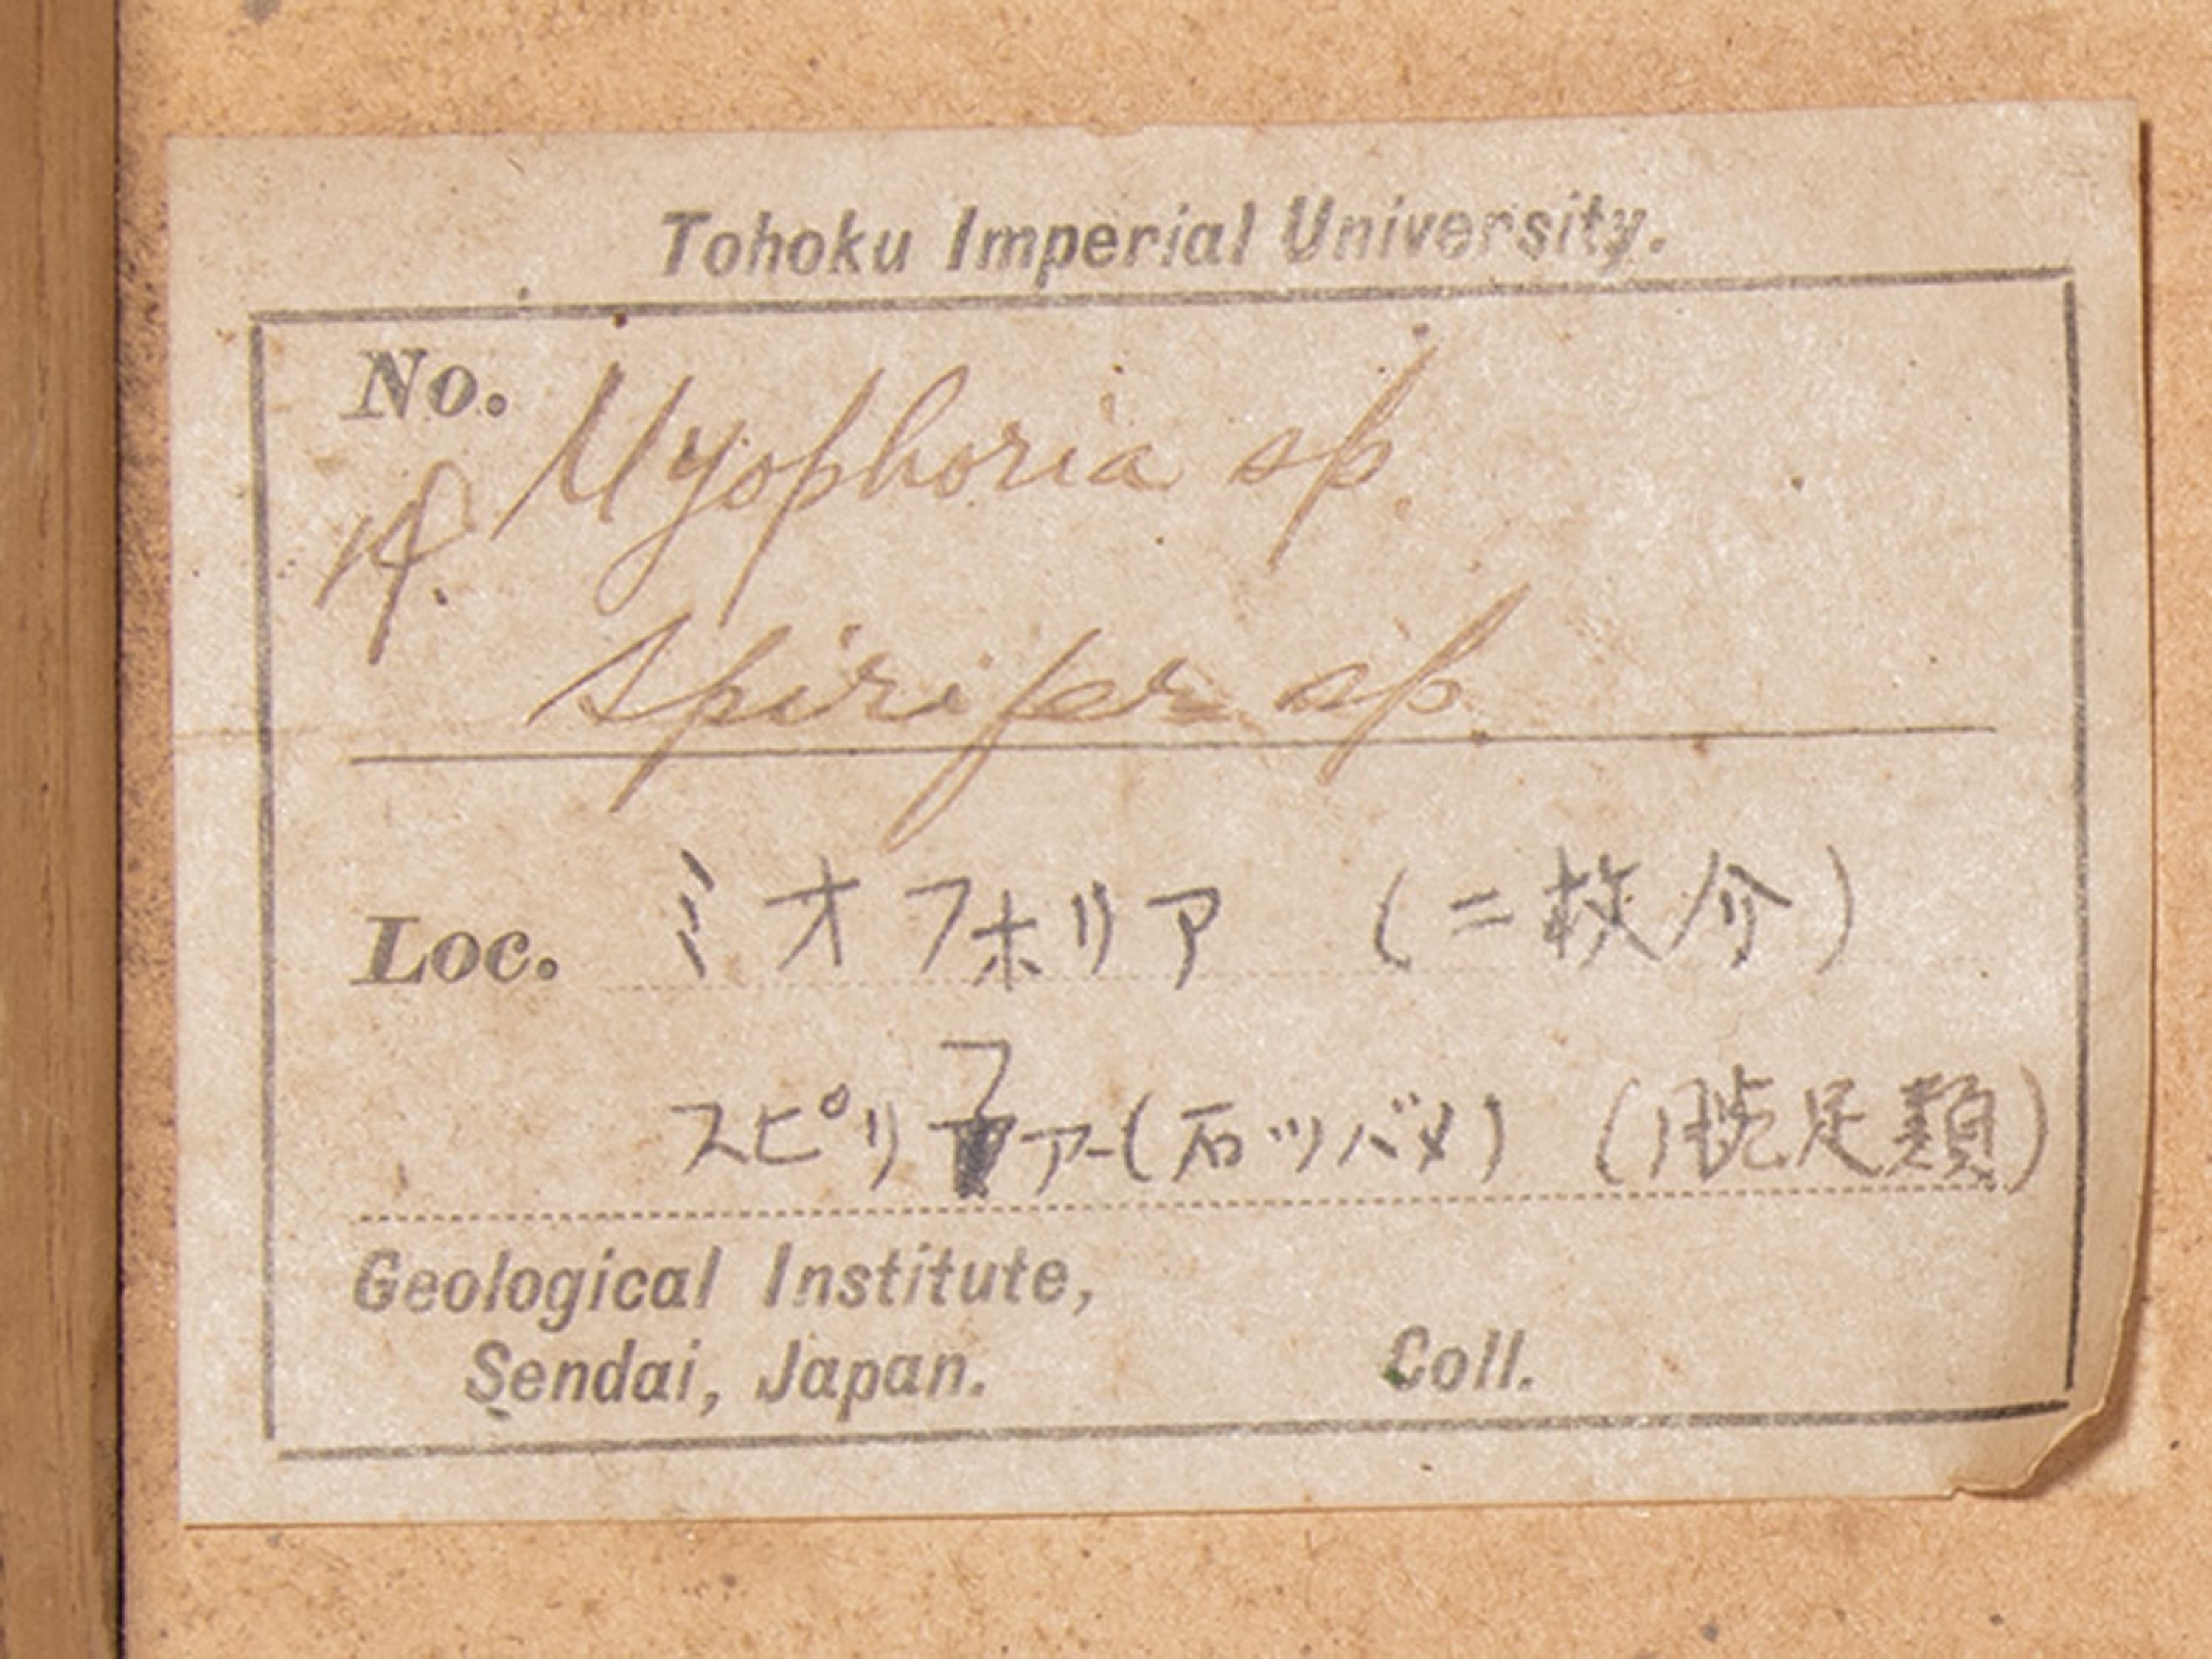 Tohoku Imperial University.
No. Myophoria sp.
Spirifer sp.
Loc. ミオフホリア (二枚介)
スピリファー(石ツバメ) (腕足類)
Geological Institute,
Sendai, Japan. Coll.